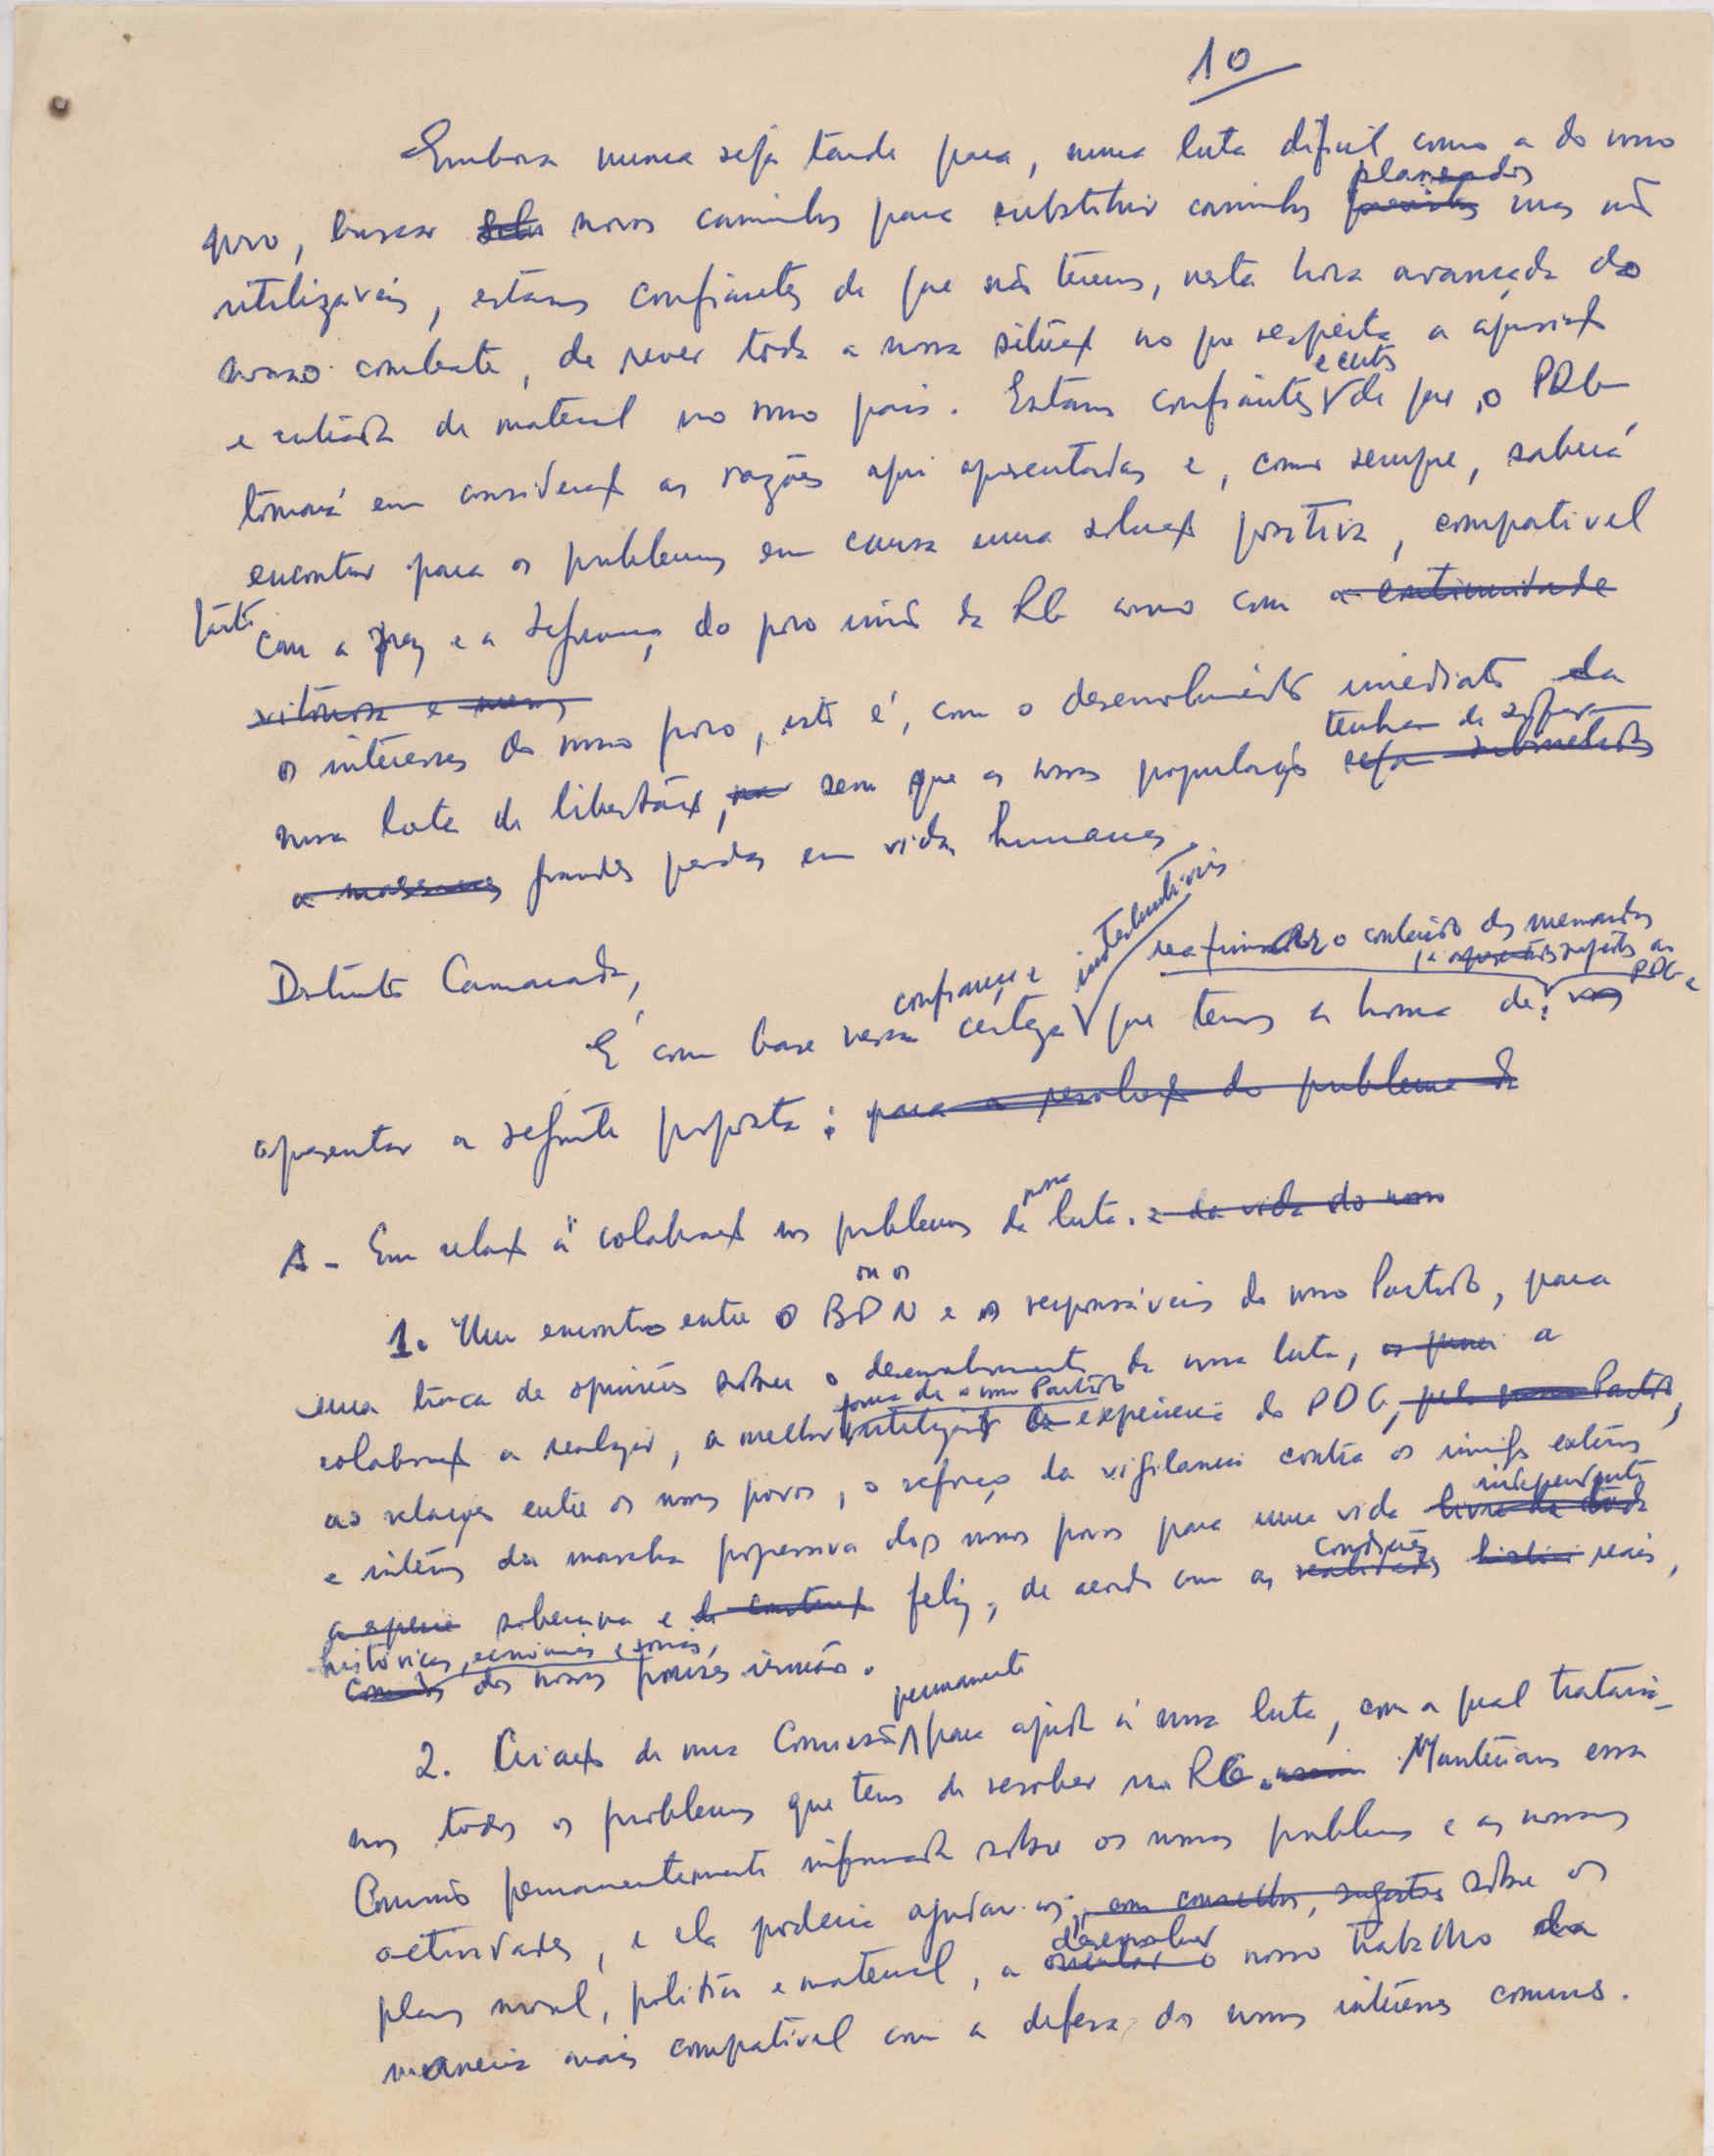 10
Embora nunca seja tarde para, numa luta dificil como a do nosso
planeados
povo, buscar novos caminhos para substituir caminhos previstos mas não
utilizáveis, estamos confiantes de que não teremos, nesta hora avançada do
nosso combate, de rever toda a nossa situação no que respeita a
e certos
e entrada de material no nosso país. Estamos confiantes de que o PDG
tomará em consideração as razões aqui apresentadas e, como sempre, saberá
encontrar para os problemas em causa uma solução positiva, compativel
tanto
com a paz e a segurança do povo irmão da RG como com a continuidade
vitoriosa e
os interesses do nosso povo, isto é, com o desenvolvimento imediato da
tenham de sofrer
nossa luta de libertação, sem que as nossas populações sejam submetidas
a massacres grandes perdas em vidas humanas.
Distinto Camarada,
confiança e indestrutíveis reafirmar o conteúdo dos memorandos
já
PDG e
É com base nessa certeza que temos a honra de: vos
apresentar a seguinte proposta: para a resolução do problema da
nossa
A - Em relação à colaboração nos problemas da luta. e da vida do nosso
ou os
1. Um encontro entre o BPN e os responsáveis do nosso Partido, para
uma troca de opiniões sobre o desenvolvimento da nossa luta, a
forma de o nosso Partido
colaboração a realizar, a melhor utilizar a experiência do PDG, pelo nosso Partido,
as relações entre os nossos povos, o reforço da vigilancia contra os inimigos externos
independente
e internos da marcha progressiva dos nossos povos para uma vida livre de toda
condições
soberana e feliz, de acordo com as realidades reais,
históricas, económicas e sociais,
dos nossos países irmãos.
permanente
2. Criação de uma Comissão para ajuda à nossa luta, com a qual trataría-
mos todos os problemas que temos de resolver na RG. Manteríamos essa
Comissão permanentemente informada sobre os nossos problemas e as nossas
actividades, e ela poderia ajudar-nos, com conselhos, sugestões sobre os
desenvolver
planos moral, político e material, a orientar o nosso trabalho da
maneira mais compatível com a defesa dos nossos interesses comuns.